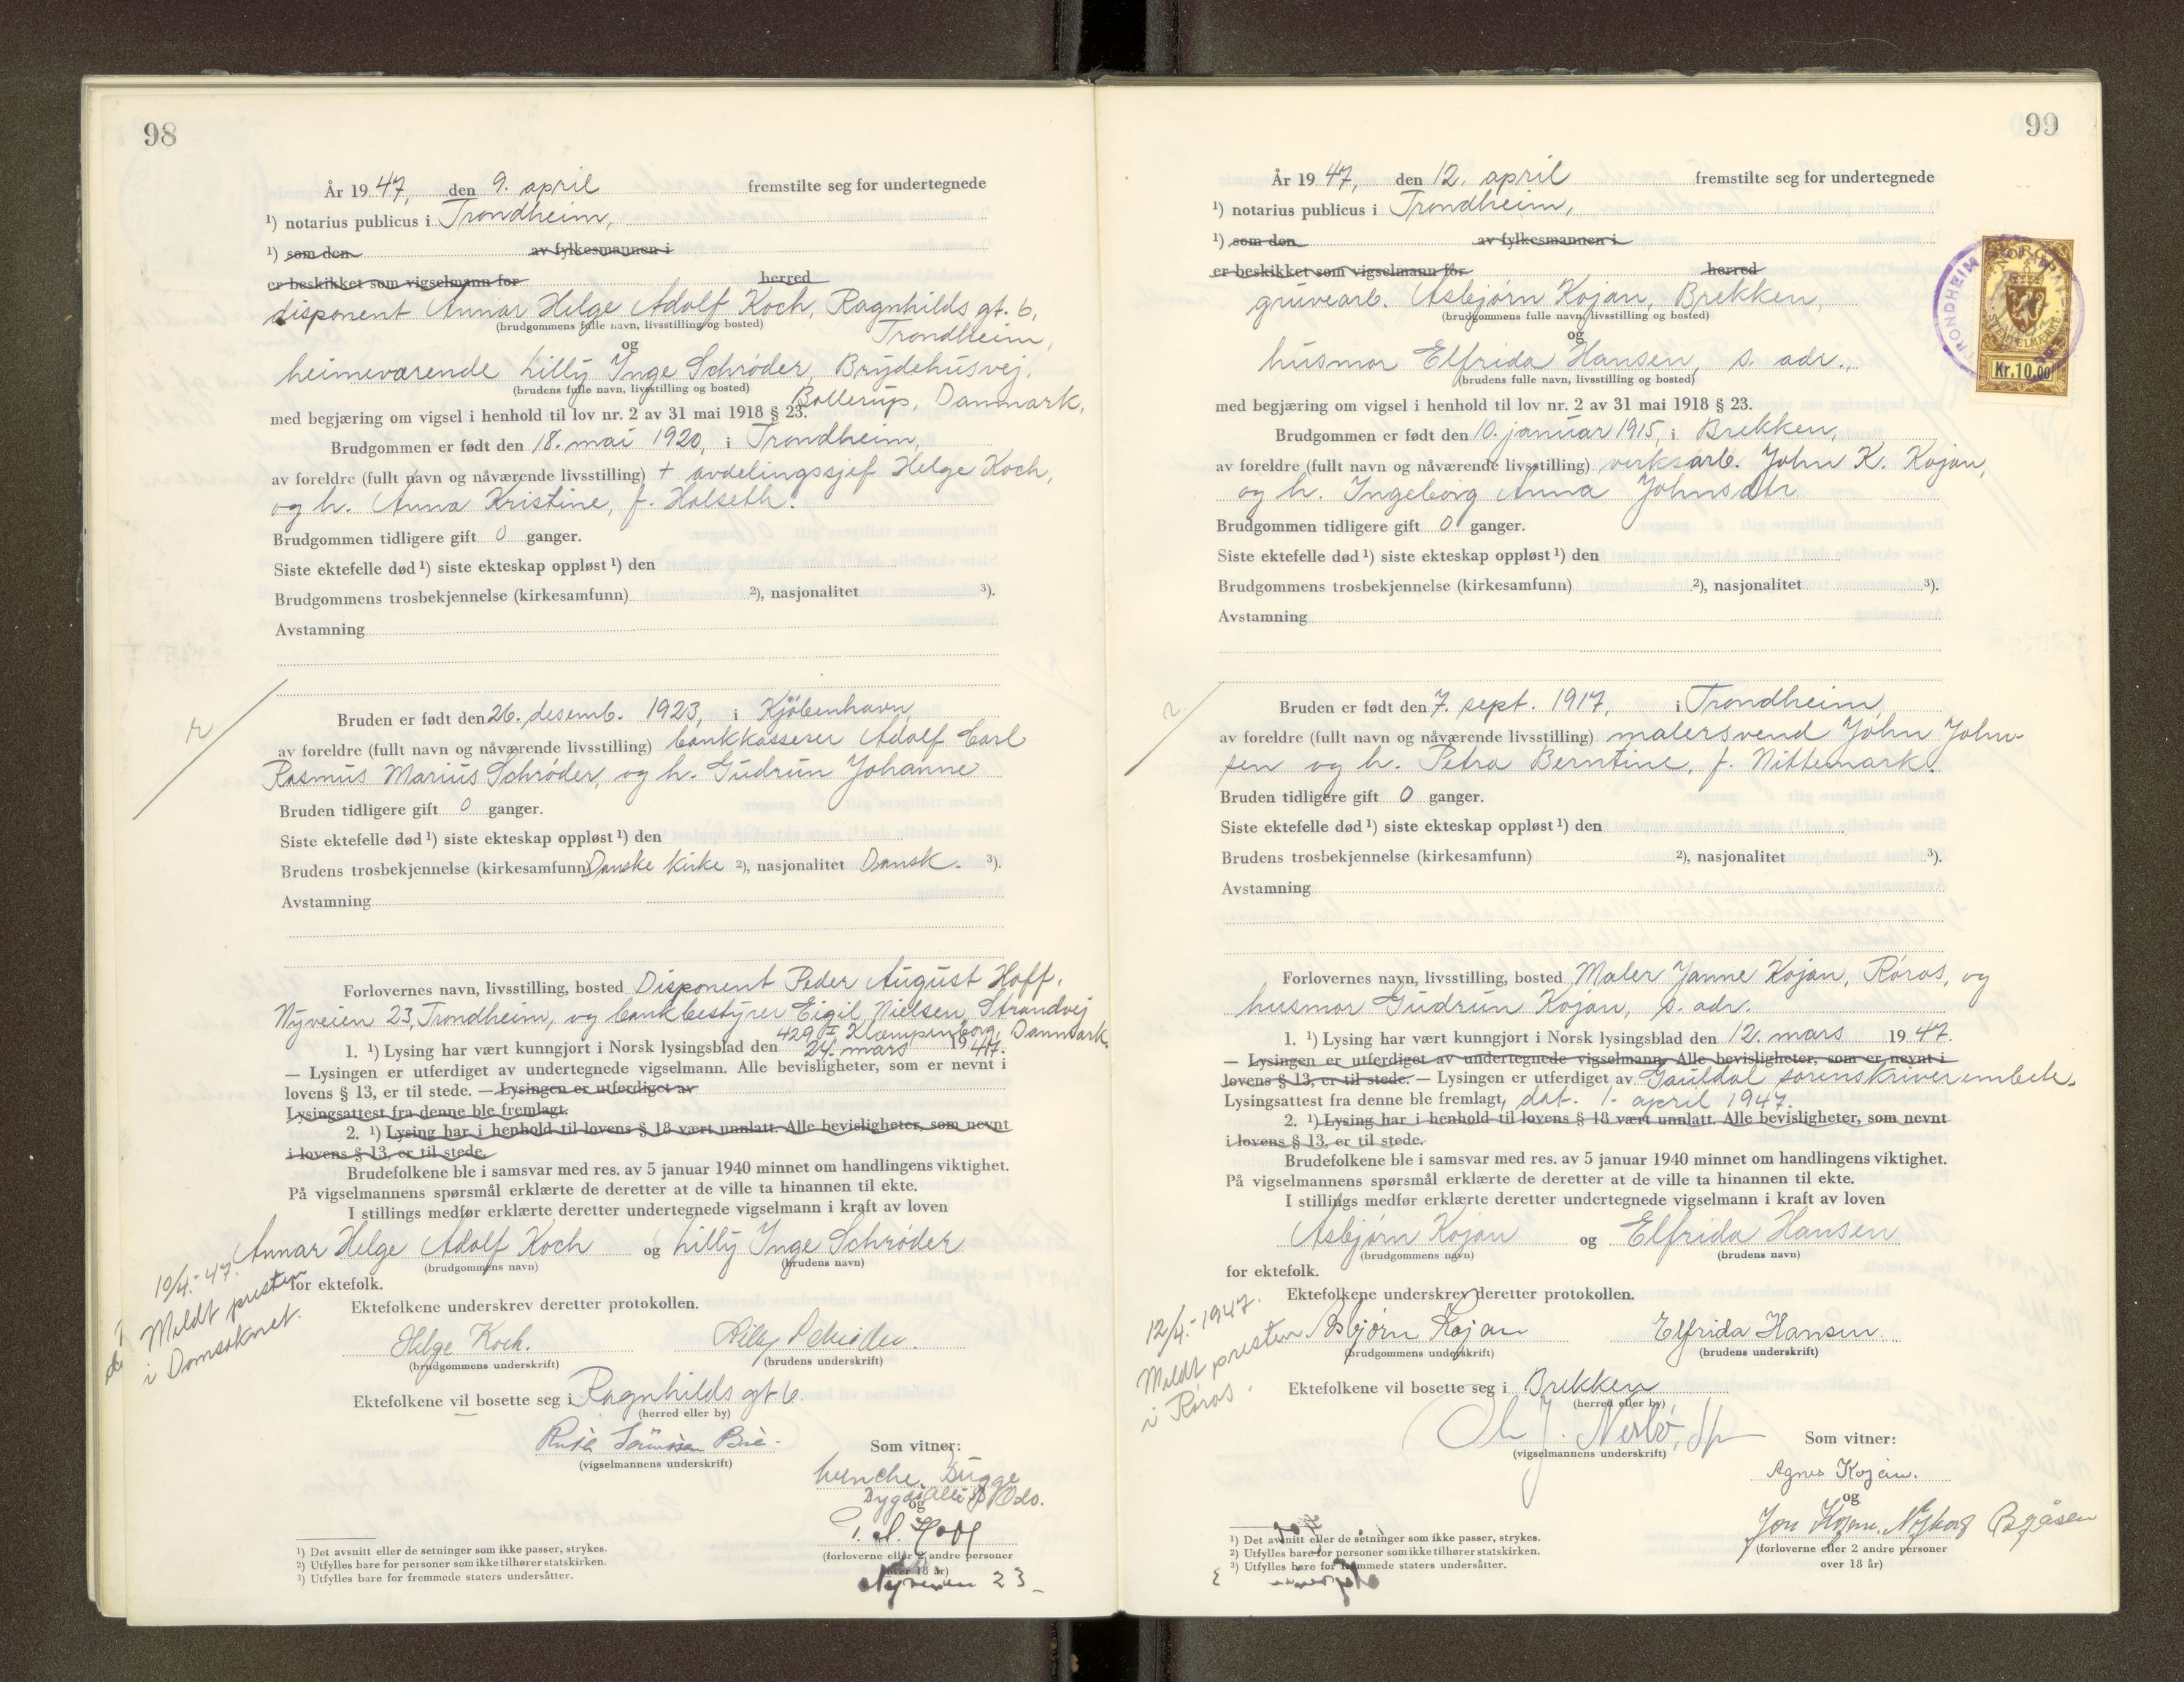 98
År 1947, den 9. april fremstilte seg for undertegnede
¹) notarius publicus i Trondheim,
¹) som den av fylkesmannen i
er beskikket som vigselmann for herred
disponent Annar Helge Adolf Koch, Ragnhilds gt. 6,
(brudgommens fulle navn, livsstilling og bosted) Trondheim,
og
heimeværende Lilly Inge Schrøder, Brydehusvej,
(brudens fulle navn, livsstilling og bosted) Ballerup, Danmark,
med begjæring om vigsel i henhold til lov nr. 2 av 31 mai 1918 § 23.
Brudgommen er født den 18. mai 1920, i Trondheim,
av foreldre (fullt navn og nåværende livsstilling) + avdelingssjef Helge Koch,
og h. Anna Kristine, f. Halseth.
Brudgommen tidligere gift 0 ganger.
Siste ektefelle død ¹) siste ekteskap oppløst ¹) den
Brudgommens trosbekjennelse (kirkesamfunn) ²), nasjonalitet ³).
Avstamning
Bruden er født den 26. desemb. 1923, i Kjöbenhavn,
av foreldre (fullt navn og nåværende livsstilling) bankkasserer Adolf Carl
Rasmus Marius Schrøder, og h. Gudrun Johanne
Bruden tidligere gift 0 ganger.
Siste ektefelle død ¹) siste ekteskap oppløst ¹) den
Brudens trosbekjennelse (kirkesamfunn) Danske kirke ²), nasjonalitet Dansk. ³).
Avstamning
Forlovernes navn, livsstilling, bosted Disponent Peder August Hoff,
Nyveien 23, Trondheim, og bankbestyrer Eigil Nielsen, Strandvej
429 I Klampenborg, Danmark.
1. ¹) Lysing har vært kunngjort i Norsk lysingsblad den 24. mars 1947.
— Lysingen er utferdiget av undertegnede vigselmann. Alle bevisligheter, som er nevnt i
lovens § 13, er til stede. — Lysingen er utferdiget av
Lysingsattest fra denne ble fremlagt.
2. ¹) Lysing har i henhold til lovens § 18 vært unnlatt. Alle bevisligheter, som nevnt
i lovens § 13, er til stede.
Brudefolkene ble i samsvar med res. av 5 januar 1940 minnet om handlingens viktighet.
På vigselmannens spørsmål erklærte de deretter at de ville ta hinannen til ekte.
I stillings medfør erklærte deretter undertegnede vigselmann i kraft av loven
Annar Helge Adolf Koch og Lilly Inge Schrøder
(brudgommens navn) (brudens navn)
for ektefolk.
10/4.-47.
Meldt presten
i Domsoknet.
Ektefolkene underskrev deretter protokollen.
Helge Koch. Lilly Schrøder.
(brudgommens underskrift) (brudens underskrift)
Ektefolkene vil bosette seg i Ragnhilds gt. 6.
(herred eller by)
(vigselmannens underskrift)
Som vitner:
Wenche Bugge
Oslo.
og
P. A. Hoff
(forloverne eller 2 andre personer
over 18 år)
Nyveien 23
¹) Det avsnitt eller de setninger som ikke passer, strykes.
²) Utfylles bare for personer som ikke tilhører statskirken.
³) Utfylles bare for fremmede staters undersåtter.
99
År 1947, den 12. april fremstilte seg for undertegnede
¹) notarius publicus i Trondheim,
¹) som den av fylkesmannen i
er beskikket som vigselmann for herred
gruvearb. Asbjørn Kojan, Brekken,
(brudgommens fulle navn, livsstilling og bosted)
og
husmor Elfrida Hansen, s. adr.,
(brudens fulle navn, livsstilling og bosted)
TRONDHEIM
NORGE
Kr. 10,00
med begjæring om vigsel i henhold til lov nr. 2 av 31 mai 1918 § 23.
Brudgommen er født den 10. januar 1915, i Brekken,
av foreldre (fullt navn og nåværende livsstilling) verksarb. John K. Kojan,
og h. Ingeborg Anna Johnsdtr
Brudgommen tidligere gift 0 ganger.
Siste ektefelle død ¹) siste ekteskap oppløst ¹) den
Brudgommens trosbekjennelse (kirkesamfunn) ²), nasjonalitet ³).
Avstamning
Bruden er født den 7. sept. 1917, i Trondheim
av foreldre (fullt navn og nåværende livsstilling) malersvend John John-
sen og h. Petra Berntine, f. Nittemark.
Bruden tidligere gift 0 ganger.
Siste ektefelle død ¹) siste ekteskap oppløst ¹) den
Brudens trosbekjennelse (kirkesamfunn) ²), nasjonalitet ³).
Avstamning
Forlovernes navn, livsstilling, bosted Maler Janne Kojan, Røros, og
husmor Gudrun Kojan, s. adr.
1. ¹) Lysing har vært kunngjort i Norsk lysingsblad den 12. mars 1947.
— Lysingen er utferdiget av undertegnede vigselmann. Alle bevisligheter, som er nevnt i
lovens § 13, er til stede. — Lysingen er utferdiget av Gauldal sorenskriverembete.
Lysingsattest fra denne ble fremlagt, dat. 1. april 1947.
2. ¹) Lysing har i henhold til lovens § 18 vært unnlatt. Alle bevisligheter, som nevnt
i lovens § 13, er til stede.
Brudefolkene ble i samsvar med res. av 5 januar 1940 minnet om handlingens viktighet.
På vigselmannens spørsmål erklærte de deretter at de ville ta hinannen til ekte.
I stillings medfør erklærte deretter undertegnede vigselmann i kraft av loven
Asbjørn Kojan og Elfrida Hansen
(brudgommens navn) (brudens navn)
for ektefolk.
12/4.-1947.
Meldt presten
i Røros.
Ektefolkene underskrev deretter protokollen.
Asbjørn Kojan Elfrida Hansen.
(brudgommens underskrift) (brudens underskrift)
Ektefolkene vil bosette seg i Brekken
(herred eller by)
(vigselmannens underskrift)
Som vitner:
Agnes Kojan.
og
Jon Kojan. Nyborg Byåsen
(forloverne eller 2 andre personer
over 18 år)
¹) Det avsnitt eller de setninger som ikke passer, strykes.
²) Utfylles bare for personer som ikke tilhører statskirken.
³) Utfylles bare for fremmede staters undersåtter.